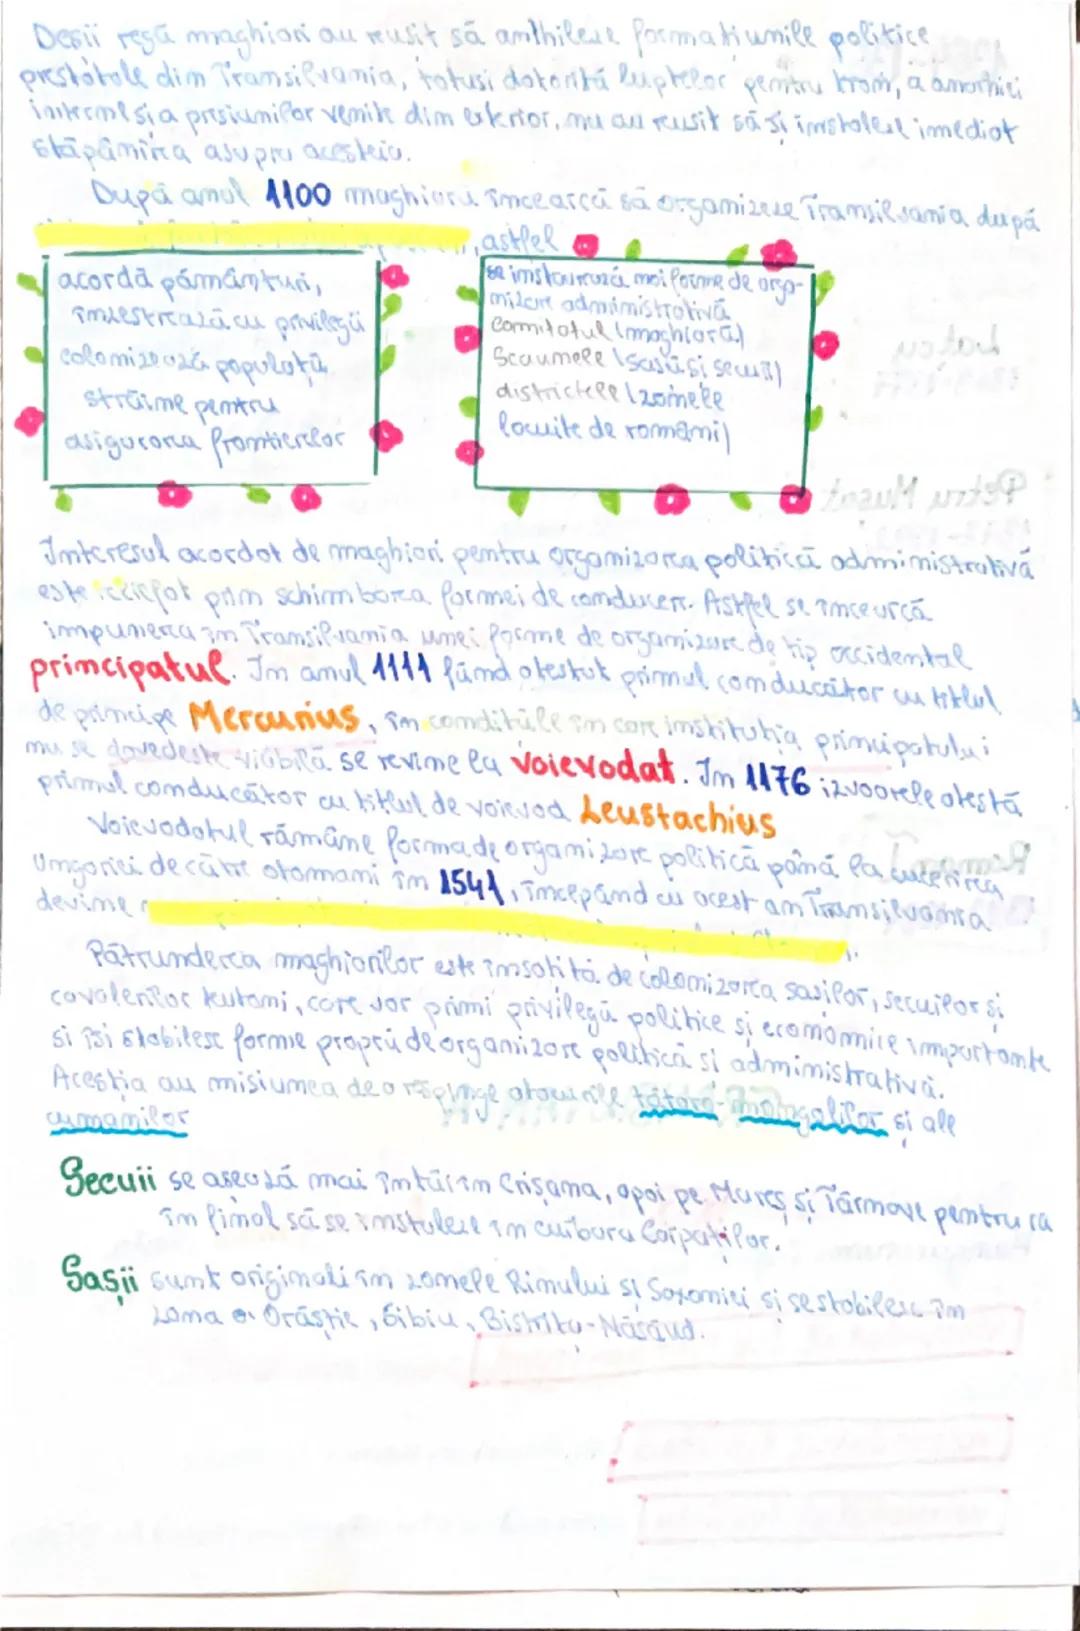 Deșii regii maghiari au reusit să anihileze formatiunile politice
prestatale din Transilvania, totusi datorită luptelor pentru tron, a anarhiei
interne si a presiunilor venite din exterior, nu au reusit să si instaleze imediat
stăpânirea asupra acesteia.
După anul 1100 maghiarii încearcă să organizeze Transilvania după
, astfel
acordă pământuri,
înzestrează cu privilegii
colonizează populatii
străine pentru
asigurarea frontierelor
se instaurează noi forme de orga-
nizare administrativă
Comitatul (maghiară)
Scaunele (sasii si secuii)
districtele (zonele
locuite de români)
Interesul acordat de maghiari pentru organizarea politică administrativă
este reliefat prin schimbarea formei de conducere. Astfel se încearcă
impunerea în Transilvania unei forme de organizare de tip occidental
principatul. In anul 1111 fiind atestat primul conducător cu titlul
de principe Mercurius, în conditiile în care institutia principatului
nu se dovedeste viabilă se revine la voievodat. In 1176 izvoarele atestă
primul conducător cu titlul de voievod Leustachius
Voievodatul rămâne forma de organizare politică până la cucerirea
Ungariei de către otomani în 1541, începând cu acest an Transilvania
devine
Pătrunderea maghiarilor este însotită de colonizarea sasilor, secuilor si
cavalerilor teutoni, care vor primi privilegii politice și economice importante
si isi stabilesc forme proprii de organizare politică si administrativă.
Acestia au misiunea de a respinge atacurile tătaro-mongolilor si ale
cumanilor
Secuii se asează mai întâi în Crișana, apoi pe Mureș și Târnave pentru ca
în final să se instaleze în curbura Carpatilor.
Sașii sunt originali în zonele Rinului si Saxoniei si se stabilesc în
zona Orăștie, Sibiu, Bistrita-Năsăud.